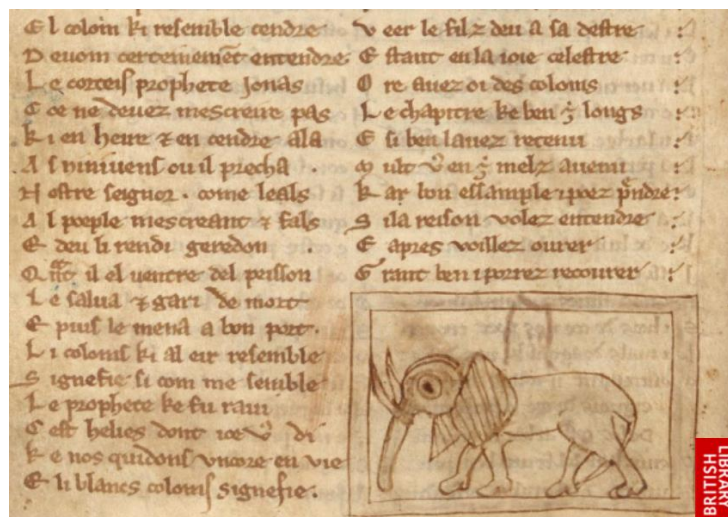 E l colom ki resemble cendre
D evom certeniemēt entendre
L e corteis prophete Jonas
C ce ne devez mescreire pas
K i en heire ⁊ en cendre ala
A s ninivens ou il precha
N ostre seignor . come leals
A l pœple mescreant ⁊ fals
E deu li rendi geredon
Q nt il el ventre del peisson
L e salva ⁊ gart de mort
E puis le mena a bon port .
L i coloms ki al eir resemble
S ignefie si com me semble
L e prophete ke fu ravi
C est helies dont ice di
K e nos quidons uncore en vie
E li blancs coloms signefie .
V eer le filz deu a sa destre
E stant en la ioie celestre
O re avez oi des coloms
L e chapitre ke ben longs
E si ben lavez retenu
M ult en melz avenu
K ar bon essample i poez prendre
S i la reison volez entendre
E apres voillez ovrer
G rant ben i porrez recovrer
BRITISH
LIBRARY